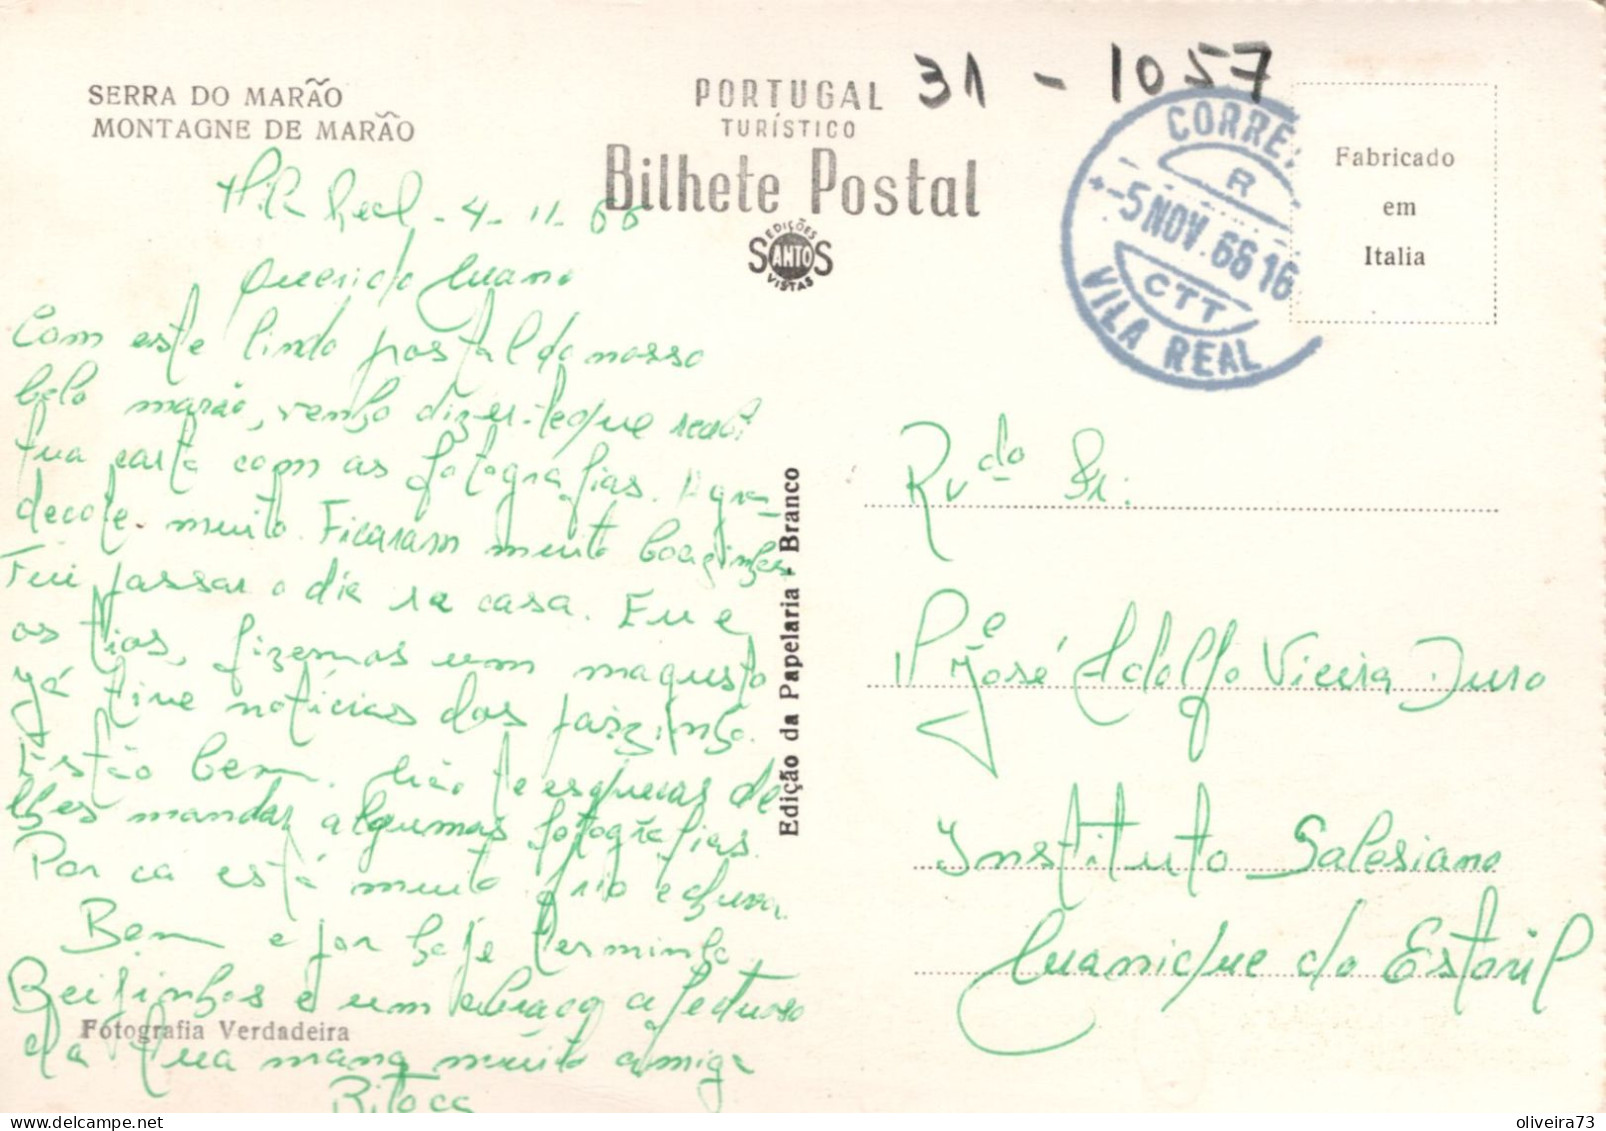 SERRA DO MARÃO
MONTAGNE DE MARÃO
PORTUGAL
TURÍSTICO
Bilhete Postal
EDIÇÕES
SANTOS
VISTAS
31 - 1057
CORRE
R
-5 NOV. 66 16
CTT
VILA REAL
Fabricado
em
Italia
Real - 4 - 11 - 66
Querido Mano
Com este lindo postal do nosso
belo marão, venho dizer-te que recebi
tua carta com as fotografias. Agra-
deço-te muito. Ficaram muito boazinhas
Fui passar o dia a casa. Eu e
os tios, fizemos um magusto
Já tive notícias dos paizinhos.
Estão bem. Não te esqueças de
lhes mandar algumas fotografias.
Por cá está muito frio e chuva.
Bem e por hoje termino.
Beijinhos e um abraço afectuoso
da tua mana muito amiga
Edição da Papelaria - Branco
Fotografia Verdadeira
Rvdo Sr.
Pe José Adolfo Vieira Duro
Instituto Salesiano
Manique do Estoril
oliveira73